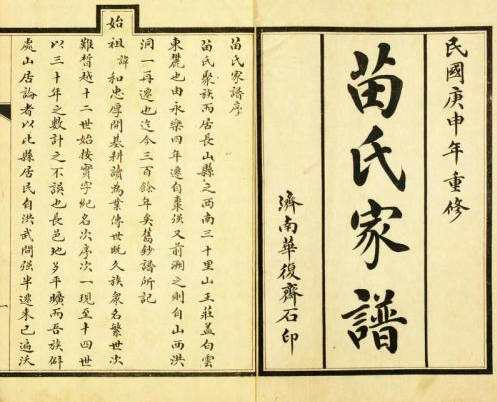 民國庚申年重修
苗氏家譜
濟南華復齋石印
苗氏家譜序
苗氏聚族而居長山縣之西南三十里山王莊蓋白雲
東麓也由永樂四年遷自棗強又前溯之則自山西洪
洞一再遷也迄今三百餘年矣舊鈔譜所記
始祖諱和忠厚開基耕讀為業傳世既久族衆名繁世次
難晳越十二世始按實字紀名次序次一現至十四世
以三十年之數計之不誤也長邑地多平曠而吾族僻
處山居論者以此縣居民自洪武間強半遷來已遍沃